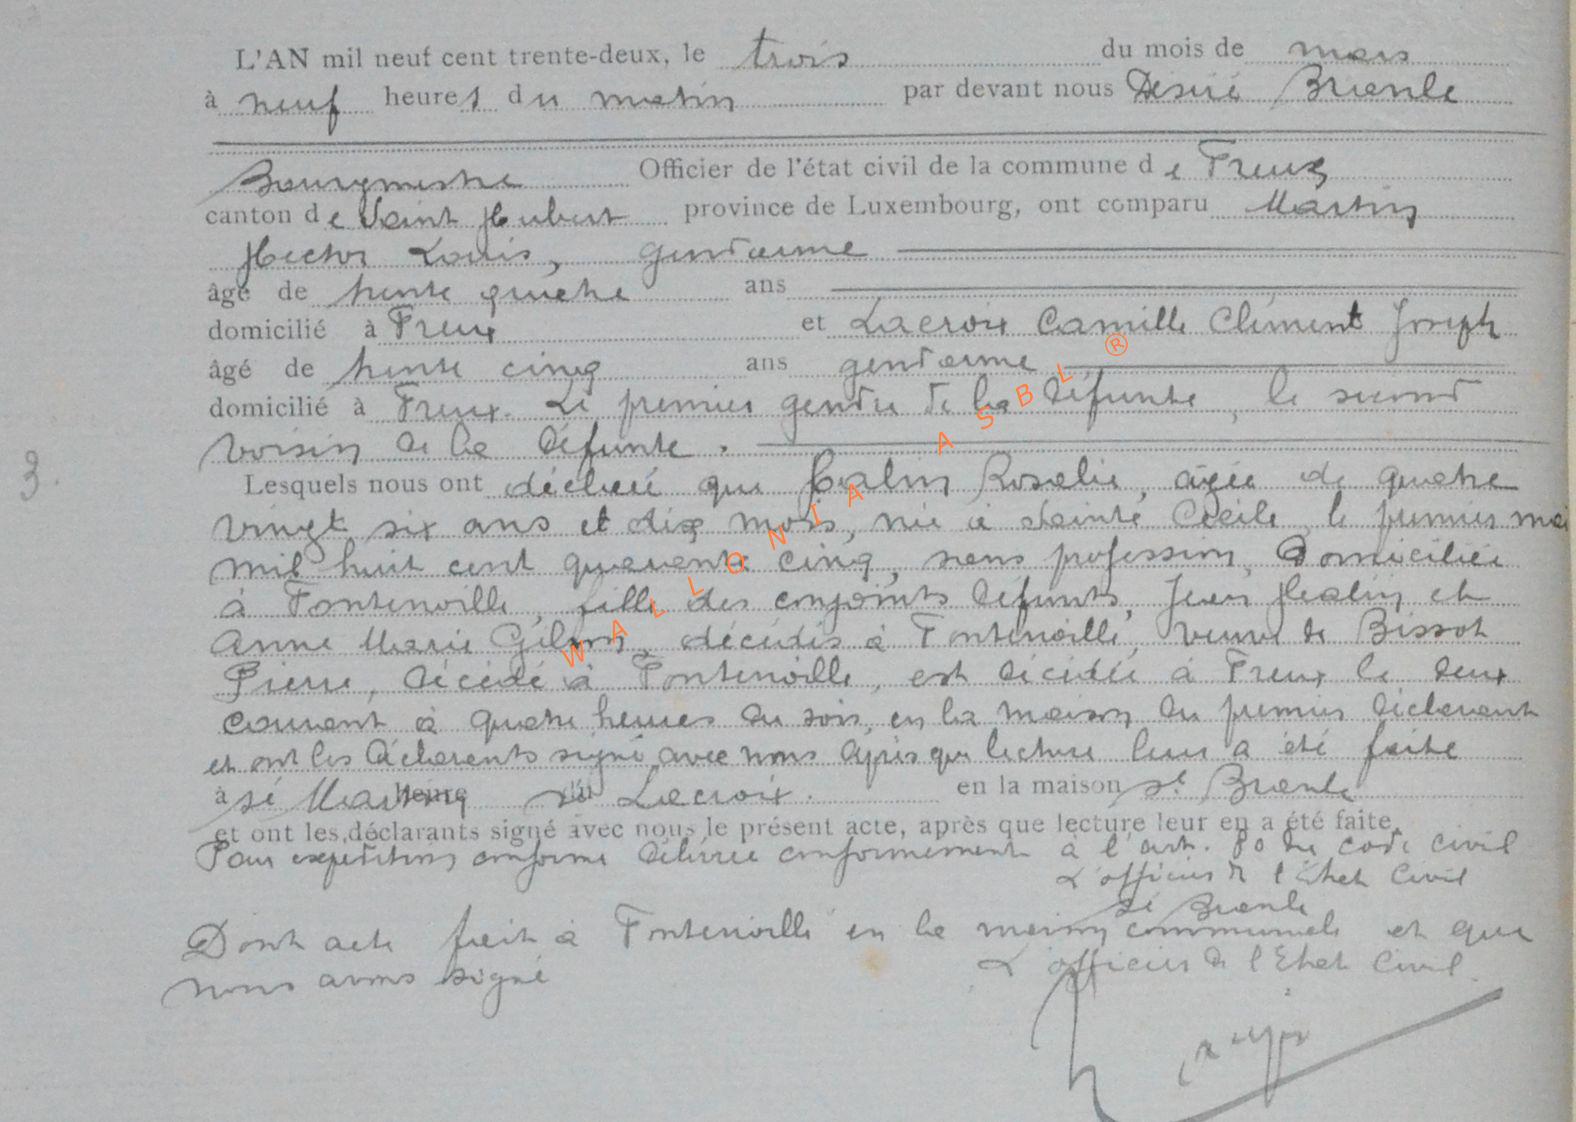 L'AN mil neuf cent trente-deux, le trois du mois de mars
à neuf heures du matin par devant nous Désiré Braenle
Bourgmestre Officier de l'état civil de la commune de Freux
canton de Saint Hubert province de Luxembourg, ont comparu Martin
Hector Louis, gendarme
âgé de trente quatre ans
domicilié à Freux et Lacroix Camille Clément Joseph
âgé de trente cinq ans gendarme
domicilié à Freux. Le premier gendre de la défunte, le second
voisin de la défunte.
3.
Lesquels nous ont déclaré que Halin Rosalie, âgée de quatre
vingt six ans et dix mois, née à Sainte Cécile, le premier mai
mil huit cent quarante cinq, sans profession, domiciliée
à Fontenoille, fille des conjoints défunts, Jean Halin et
Anne Marie Gilson, décédés à Fontenoille, veuve de Bissot
Pierre, décédé à Fontenoille, est décédée à Freux le deux
courant à quatre heures du soir, en la maison du premier déclarant
et ont les déclarants signé avec nous après que lecture leur a été faite
à heure sé Martin sé Lacroix. en la maison sé Braenle
et ont les déclarants signé avec nous le présent acte, après que lecture leur en a été faite.
Pour expédition conforme délivrée conformément à l'art. 80 du code civil
L'officier de l'Etat Civil
sé Braenle
Dont acte fait à Fontenoille en la maison communale et que
nous avons signé
L'officier de l'Etat Civil.
WALLONIA ASBL ®